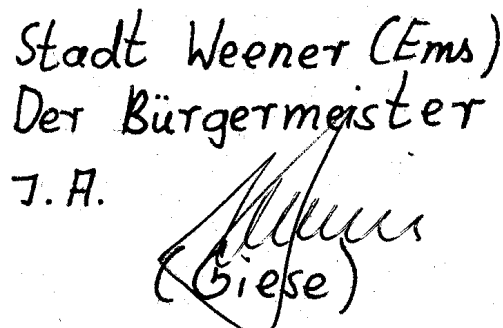 Stadt Weener (Ems)
Der Bürgermeister
J. A.
(Giese)